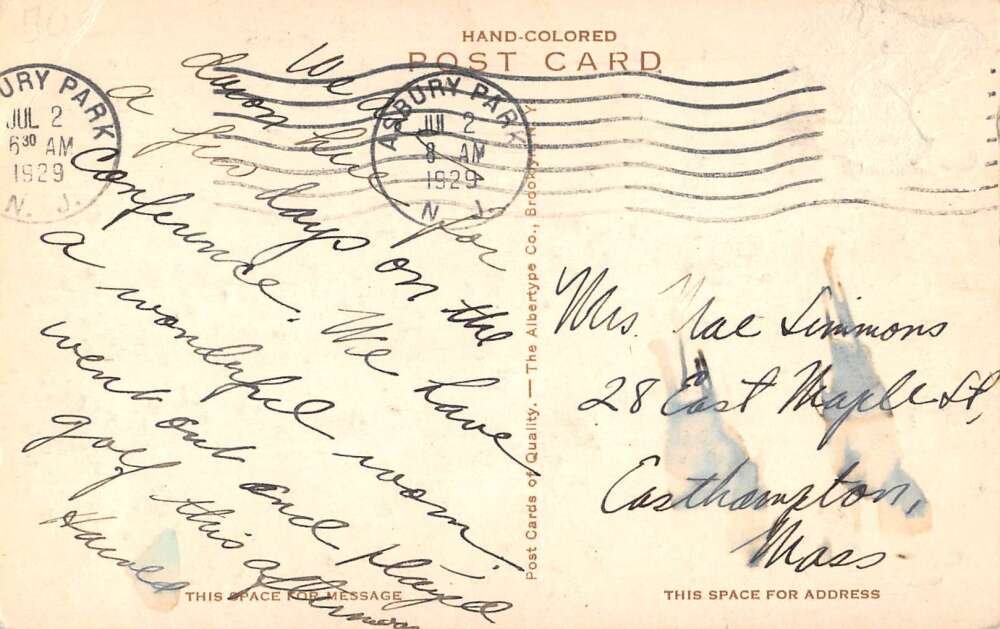 HAND-COLORED
POST CARD
URY PARK
JUL 2
6 30 AM
1929
N. J.
ASBURY PARK
JUL 2
8 AM
1929
N. J.
We are
down here for
a few days on the
Conference. We have
a wonderful room.
went out and played
golf this afternoon
Harold
Post Cards of Quality. — The Albertype Co., Brooklyn, N. Y.
Mrs. Mae Simmons
28 East Maple St,
Easthampton,
Mass
THIS SPACE FOR MESSAGE
THIS SPACE FOR ADDRESS